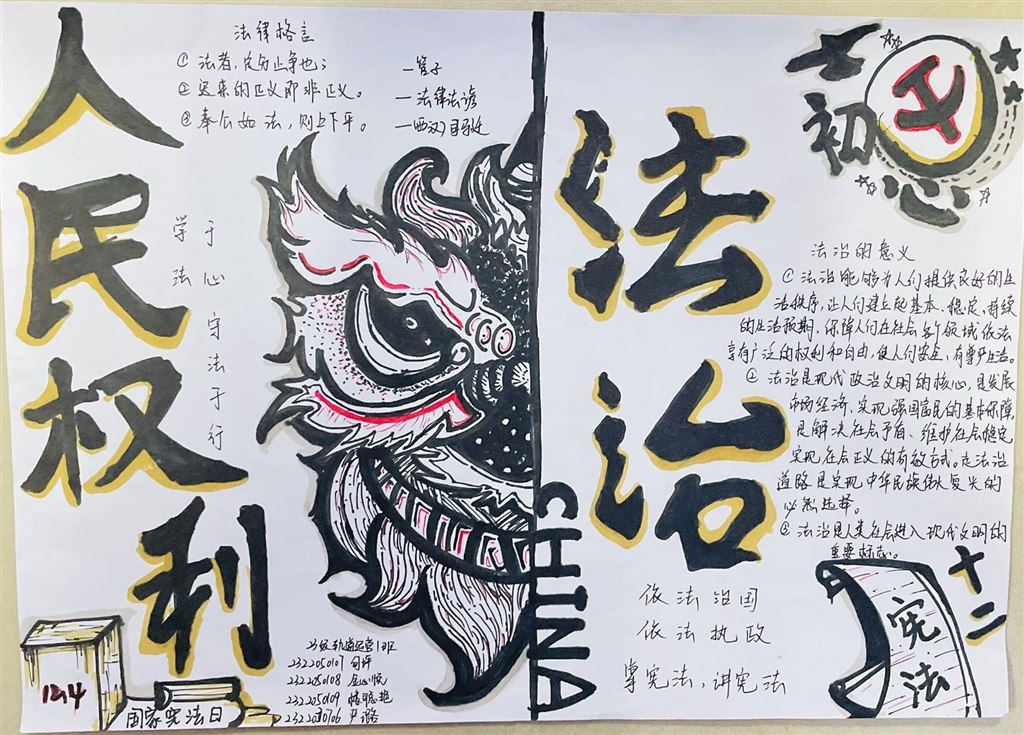 人民权利
法律格言
①法者,定分止争也;
—管子
②迟来的正义即非正义。
—法律法谚
③奉公如法,则上下平。
—(西汉)司马迁
学法于心
守法于行
CHINA
法治
初心
法治的意义
①法治能够为人们提供良好的生
活秩序,让人们建立起基本、稳定、持续
的生活预期,保障人们在社会各个领域依法
享有广泛的权利和自由,使人们安全、有尊严生活。
②法治是现代政治文明的核心,是发展
市场经济,实现强国富民的基本保障,
是解决社会矛盾、维护社会稳定
实现社会正义的有效方式。走法治
道路是实现中华民族伟大复兴的
必然选择。
③法治是人类社会进入现代文明的
重要标志。
十二
宪法
依法治国
依法执政
掌宪法,讲宪法
12.4
国家宪法日
23级轨道运营1班
2322050107
2322050108
2322050109
严璐